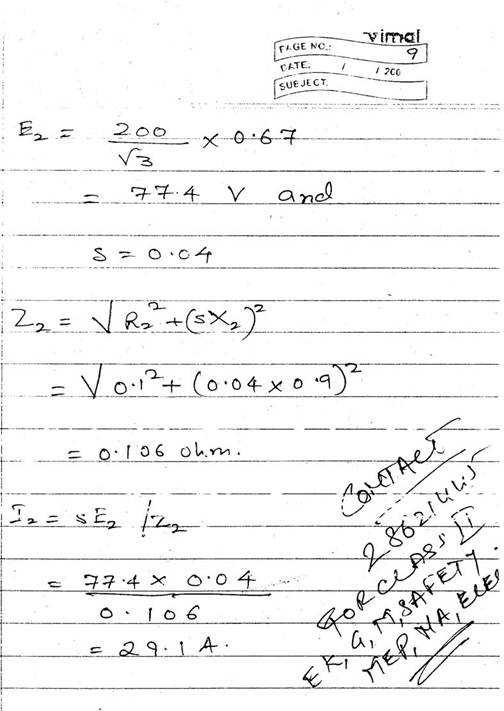 vimal
PAGE NO.: 9
DATE: / / 200
SUBJECT:
E₂ = 200/√3 × 0.67
= 77.4 V and
s = 0.04
Z₂ = √R₂² + (sX₂)²
= √0.1² + (0.04 × 0.9)²
= 0.106 ohm.
I₂ = sE₂ / Z₂
= 77.4 × 0.04 / 0.106
= 29.1 A.
CONTACT
FOR CLASS II
EK, G, M, SAFETY.
MEP, NA, ELEC